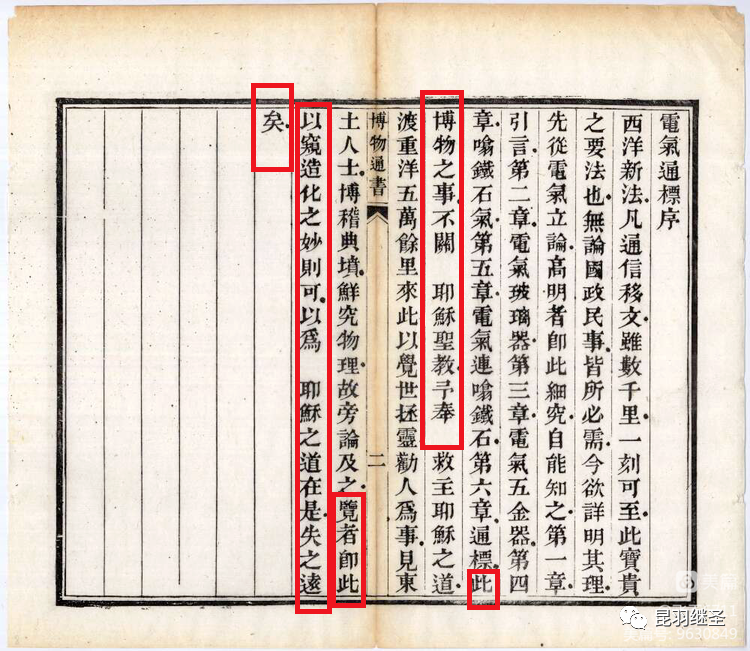 電氣通標序
西洋新法凡通信移文雖數千里一刻可至此寶貴
之要法也無論國政民事皆所必需今欲詳明其理
先從電氣立論高明者卽此細究自能知之第一章
引言第二章電氣玻璃器第三章電氣五金器第四
章噏鐵石氣第五章電氣連噏鐵石第六章通標此
博物之事不關　耶穌聖教予奉　救主耶穌之道
渡重洋五萬餘里來此以覺世拯靈勸人爲事見東
博物通書
二
土人士博稽典墳鮮究物理故旁論及之覽者卽此
以窺造化之妙則可以爲　耶穌之道在是失之遠
矣
昆羽继圣
9630849